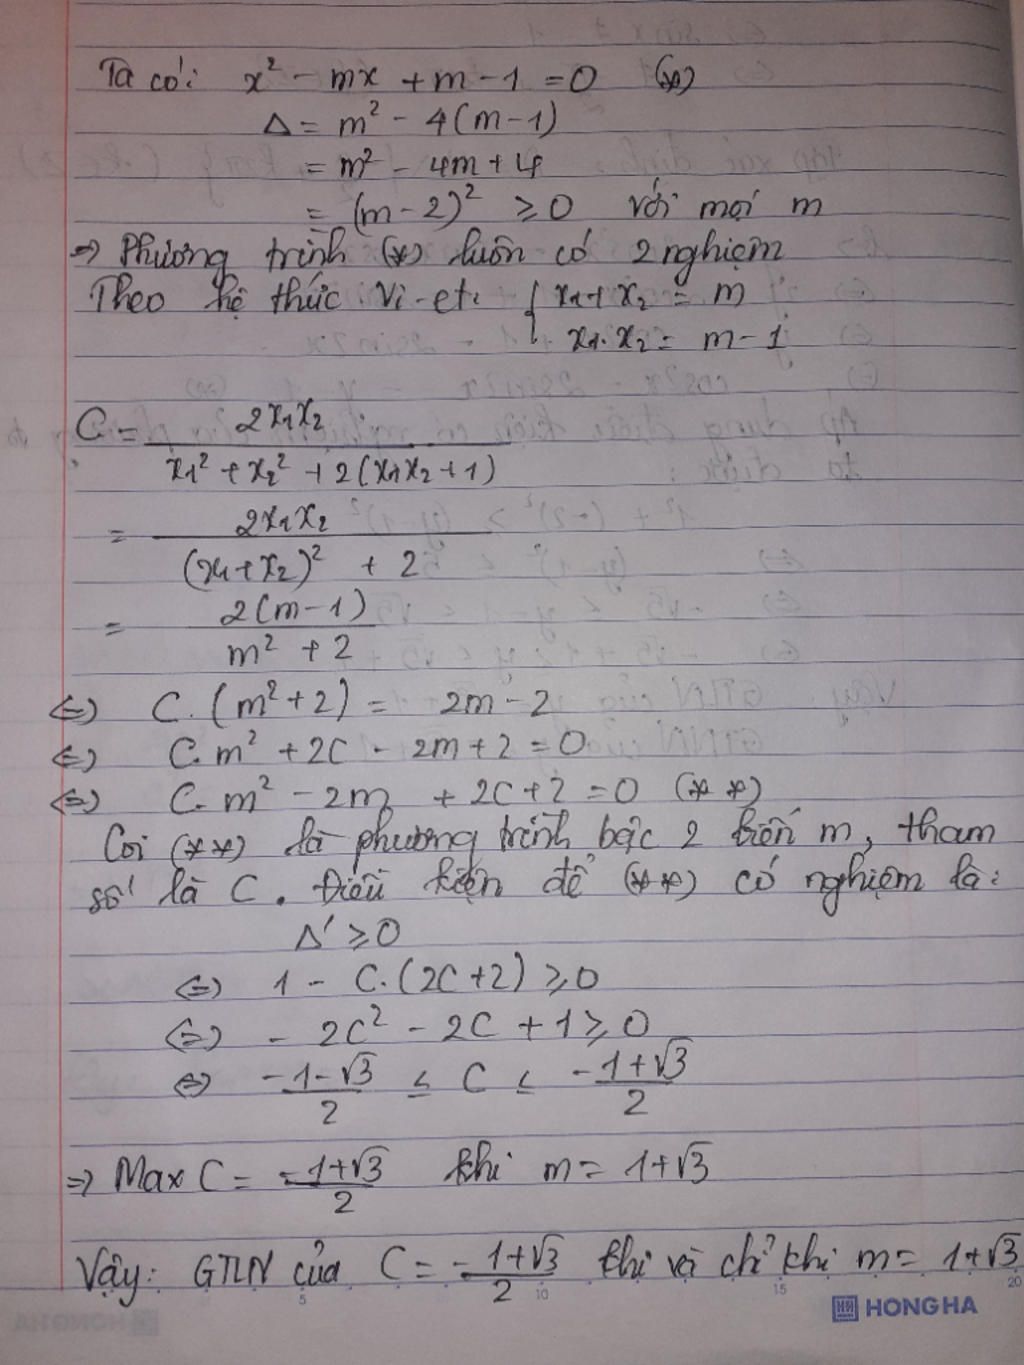 Ta có: x² - mx + m - 1 = 0 (*)
Δ = m² - 4(m-1)
= m² - 4m + 4
= (m-2)² ≥ 0 với mọi m
⇒ Phương trình (*) luôn có 2 nghiệm
Theo hệ thức Vi-et: { x₁ + x₂ = m
x₁.x₂ = m - 1
C = 2x₁x₂ / (x₁² + x₂² + 2(x₁x₂ + 1))
= 2x₁x₂ / ((x₁+x₂)² + 2)
= 2(m-1) / (m² + 2)
⇔ C.(m²+2) = 2m - 2
⇔ C.m² + 2C - 2m + 2 = 0
⇔ C.m² - 2m + 2C + 2 = 0 (**)
Coi (**) là phương trình bậc 2 biến m, tham
số là C. Điều kiện để (**) có nghiệm là:
Δ' ≥ 0
⇔ 1 - C.(2C+2) ≥ 0
⇔ - 2C² - 2C + 1 ≥ 0
⇔ (-1-√3)/2 ≤ C ≤ (-1+√3)/2
⇒ Max C = (-1+√3)/2 khi m = 1+√3
Vậy: GTLN của C = (-1+√3)/2 khi và chỉ khi m = 1+√3
5 10 15 20
HONG HA